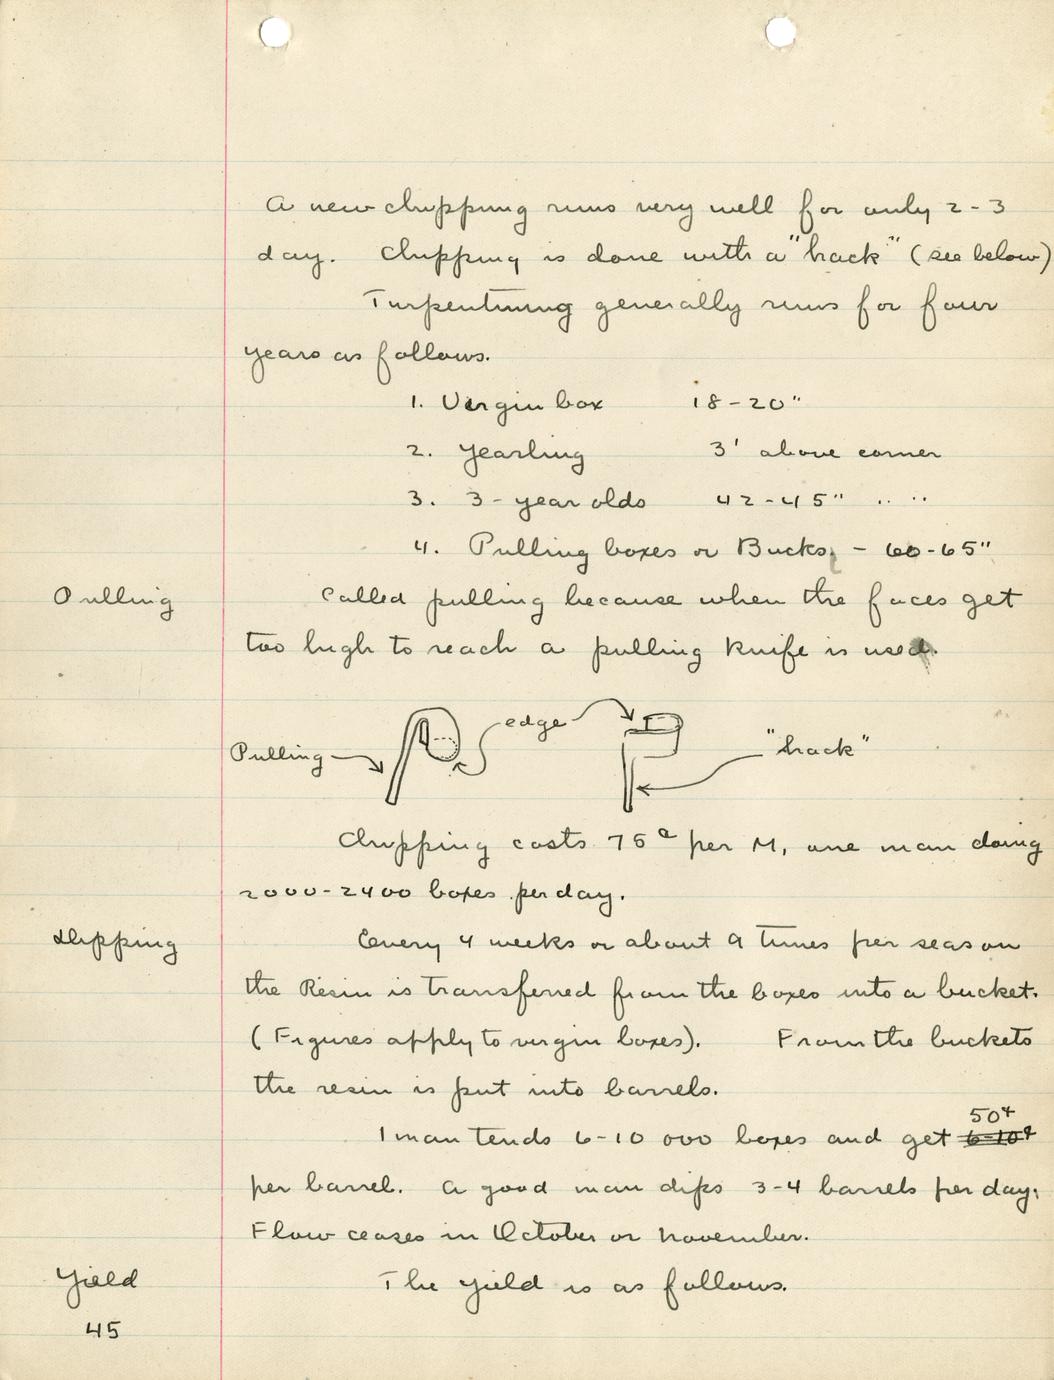 A new chipping runs very well for only 2-3
day. Chipping is done with a "hack" (see below)
Turpentining generally runs for four
years as follows.
1. Virgin box 18-20"
2. Yearling 3' above corner
3. 3-year olds 42-45" " "
4. Pulling boxes or Bucks, - 60-65"
Pulling Called pulling because when the faces get
too high to reach a pulling knife is used.
Pulling edge "hack"
Chipping costs 75¢ per M, one man doing
2000-2400 boxes per day.
Dipping Every 4 weeks or about 9 times per season
the Resin is transferred from the boxes into a bucket.
(Figures apply to virgin boxes). From the buckets
the resin is put into barrels.
50¢
1 man tends 6-10 000 boxes and get 6-10¢
per barrel. A good man dips 3-4 barrels per day.
Flow ceases in October or November.
Yield The yield is as follows.
45